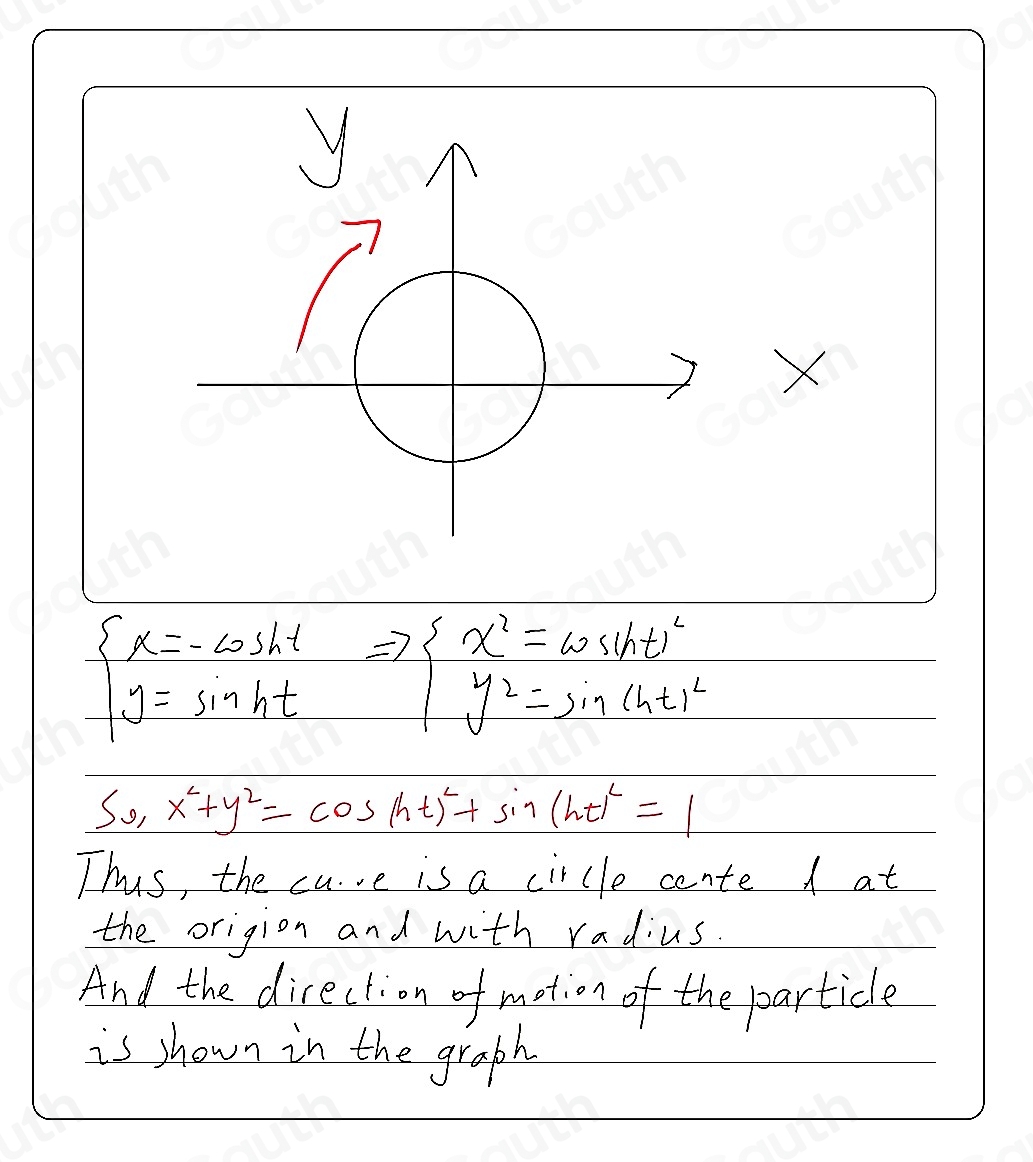 y
x
{ x = -cosht ⇒ { x² = cos(ht)²
y = sinht y² = sin(ht)²
So, x²+y² = cos(ht)²+ sin(ht)² = 1
Thus, the cu..ve is a circle cente d at
the origion and with radius.
And the direction of motion of the particle
is shown in the graph
Gauth